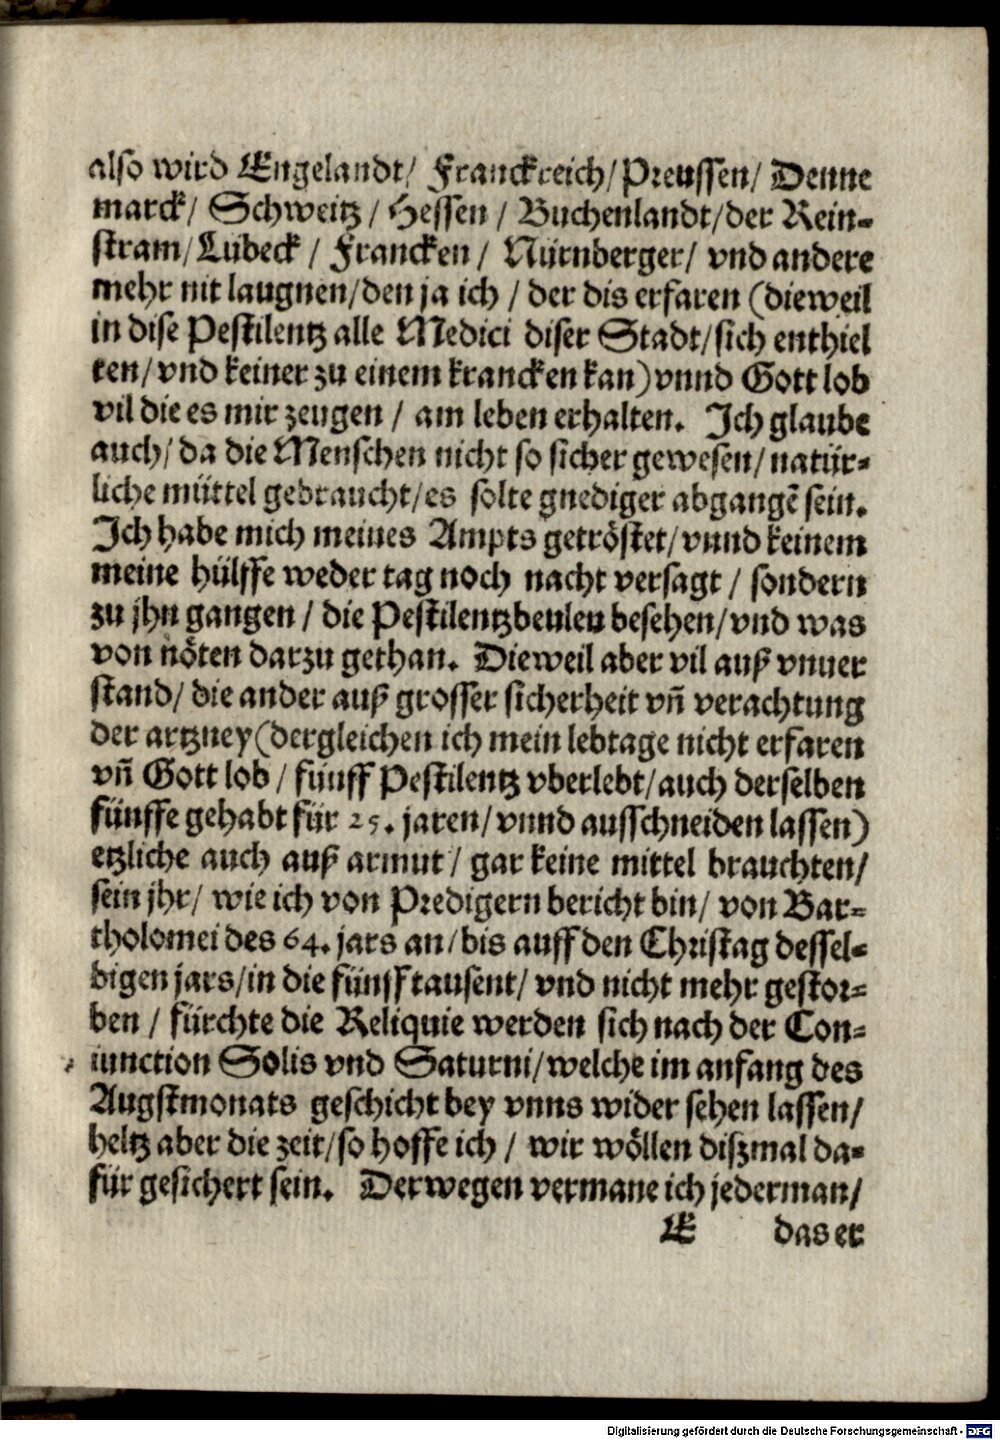 also wird Engelandt/ Franckreich/Preussen/ Denne
marck/ Schweitz / Hessen / Buchenlandt/der Rein-
stram/Lübeck / Francken / Nürnberger/ vnd andere
mehr nit laugnen/den ja ich / der dis erfaren (dieweil
in dise Pestilentz alle Medici diser Stadt/sich enthiel
ten/vnd keiner zu einem krancken kan) vnnd Gott lob
vil die es mir zeugen / am leben erhalten. Ich glaube
auch/ da die Menschen nicht so sicher gewesen/ natür-
liche müttel gebraucht/es solte gnediger abgangē sein.
Ich habe mich meines Ampts getröstet/vnnd keinem
meine hülffe weder tag noch nacht versagt / sondern
zu jhn gangen / die Pestilentzbeulen besehen/vnd was
von nöten darzu gethan. Dieweil aber vil auß vnuer
stand/ die ander auß grosser sicherheit vñ verachtung
der artzney (dergleichen ich mein lebtage nicht erfaren
vñ Gott lob / fünff Pestilentz vberlebt/auch derselben
fünffe gehabt für 25. jaren/vnnd ausschneiden lassen)
etzliche auch auß armut / gar keine mittel brauchten/
sein jhr/ wie ich von Predigern bericht bin/ von Bar-
tholomei des 64. jars an/bis auff den Christag dessel-
bigen jars/in die fünff tausent/ vnd nicht mehr gestor-
ben / fürchte die Reliquie werden sich nach der Con-
iunction Solis vnd Saturni/welche im anfang des
Augstmonats geschicht bey vnns wider sehen lassen/
heltz aber die zeit/so hoffe ich / wir wöllen diszmal da-
für gesichert sein. Derwegen vermane ich jederman/
E das er
Digitalisierung gefördert durch die Deutsche Forschungsgemeinschaft - DFG